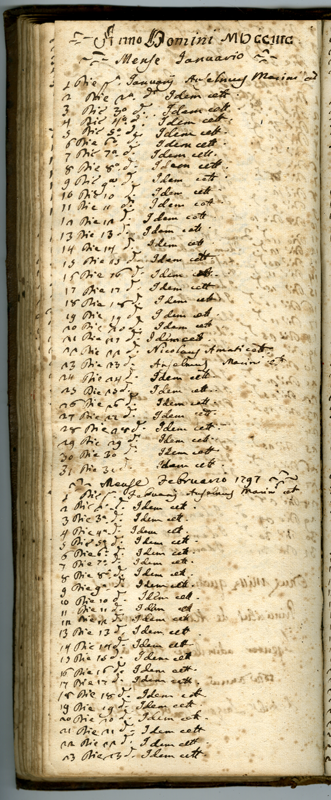 Anno Domini
Mense Januario
1 Die pª Januarij Anselmus Marini cet
2 Die 2ª dº Idem cett
3 Die 3ª d. Idem cett
4 Die 4ª d. Idem cett
5 Die 5ª d. Idem cett
6 Die 6ª d. Idem cett
7 Die 7ª d. Idem cett
8 Die 8ª d. Idem cett
9 Die 9ª d. Idem cett
10 Die 10 d. Idem cett
11 Die 11 d. Idem cett
12 Die 12 d. Idem cett
13 Die 13 d. Idem cett
14 Die 14 d. Idem cett
15 Die 15 d. Idem cett
16 Die 16 d. Idem cett
17 Die 17 d. Idem cett
18 Die 18 d. Idem cett
19 Die 19 d. Idem cett
20 Die 20 d. Idem cett
21 Die 21 d. Idem cett
22 Die 22 d. Nicolaus Amati cett
23 Die 23 d. Anselmus Marini cet
24 Die 24 d. Idem cett
25 Die 25 d. Idem cett
26 Die 26 d. Idem cett
27 Die 27 d. Idem cet
28 Die 28 d. Idem cett
29 Die 29 d. Idem cett
30 Die 30 d. Idem cett
31 Die 31 d. Idem cett
Mense Februario 1797
1 Die pª Februarij Anselmus Marini cet
2 Die 2ª d. Idem cet
3 Die 3ª d. Idem cet
4 Die 4ª d. Idem cet
5 Die 5ª d. Idem cet
6 Die 6ª d. Idem cet
7 Die 7ª d. Idem cet
8 Die 8ª d. Idem cet
9 Die 9ª d. Idem cet
10 Die 10 d. Idem cet
11 Die 11 d. Idem cet
12 Die 12 d. Idem cet
13 Die 13 d. Idem cet
14 Die 14 d. Idem cet
15 Die 15 d. Idem cet
16 Die 16 d. Idem cet
17 Die 17 d. Idem cet
18 Die 18 d. Idem cett
19 Die 19 d. Idem cett
20 Die 20 d. Idem cett
21 Die 21 d. Idem cett
22 Die 22 d. Idem cett
23 Die 23 d. Idem cett